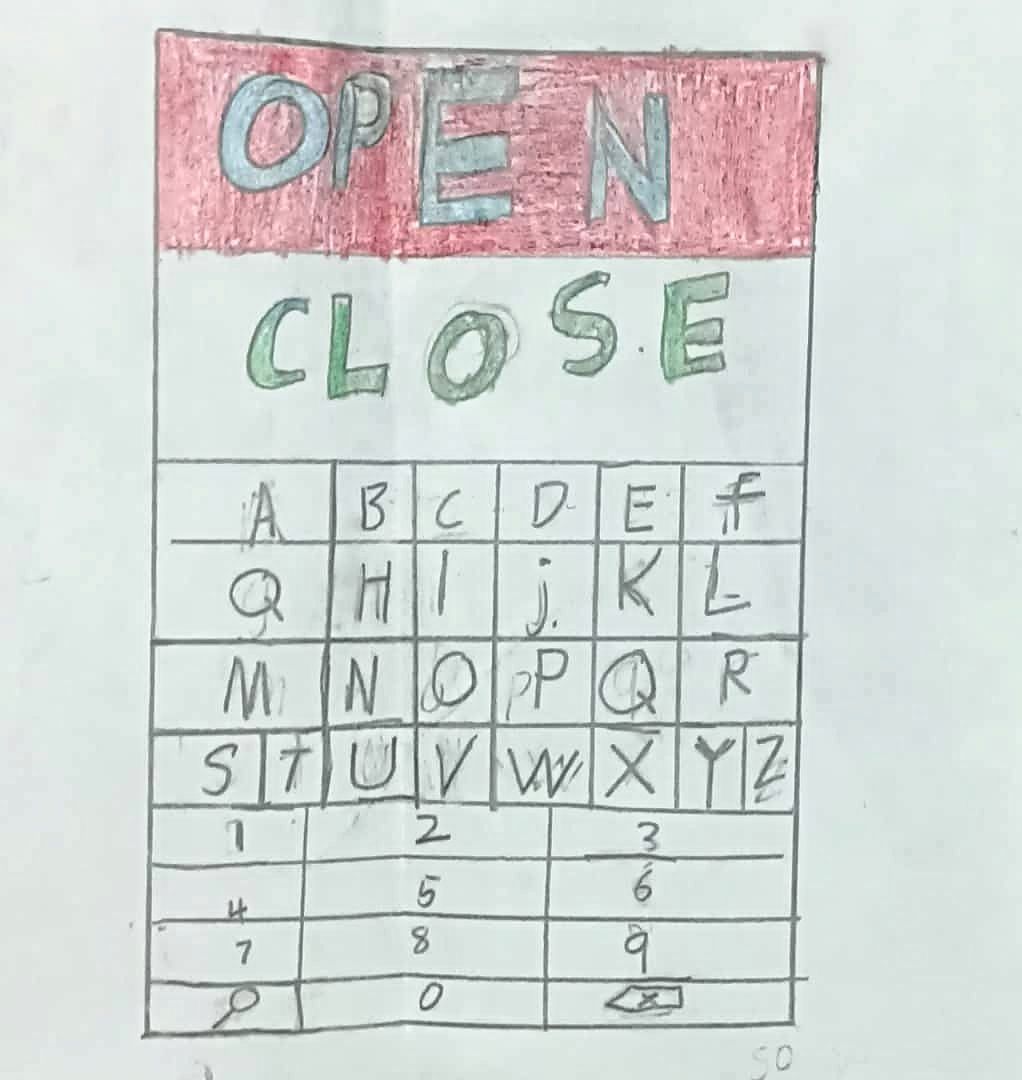 OPEN
CLOSE
A B C D E F
Q H I j. K L
M N O P Q R
S T U V W X Y Z
1 2 3
4 5 6
7 8 9
0 x
50